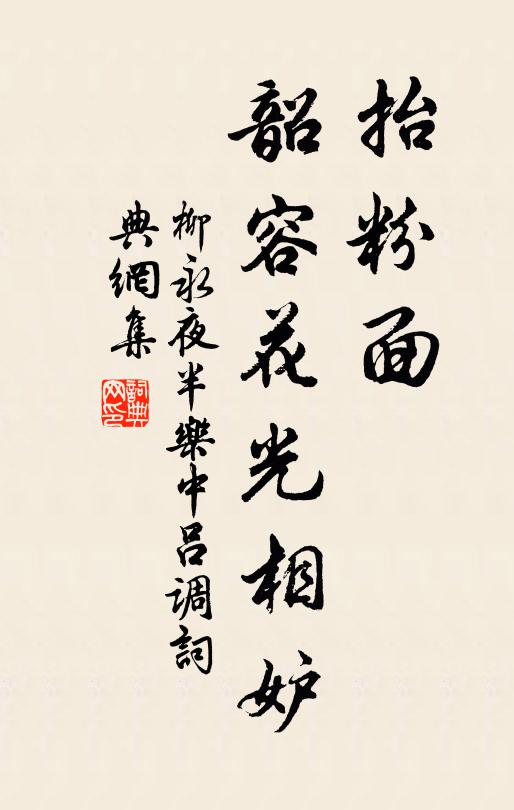 抬粉面
韶容花光相妒
柳永夜半樂中呂调詞
典網集
詞典网印